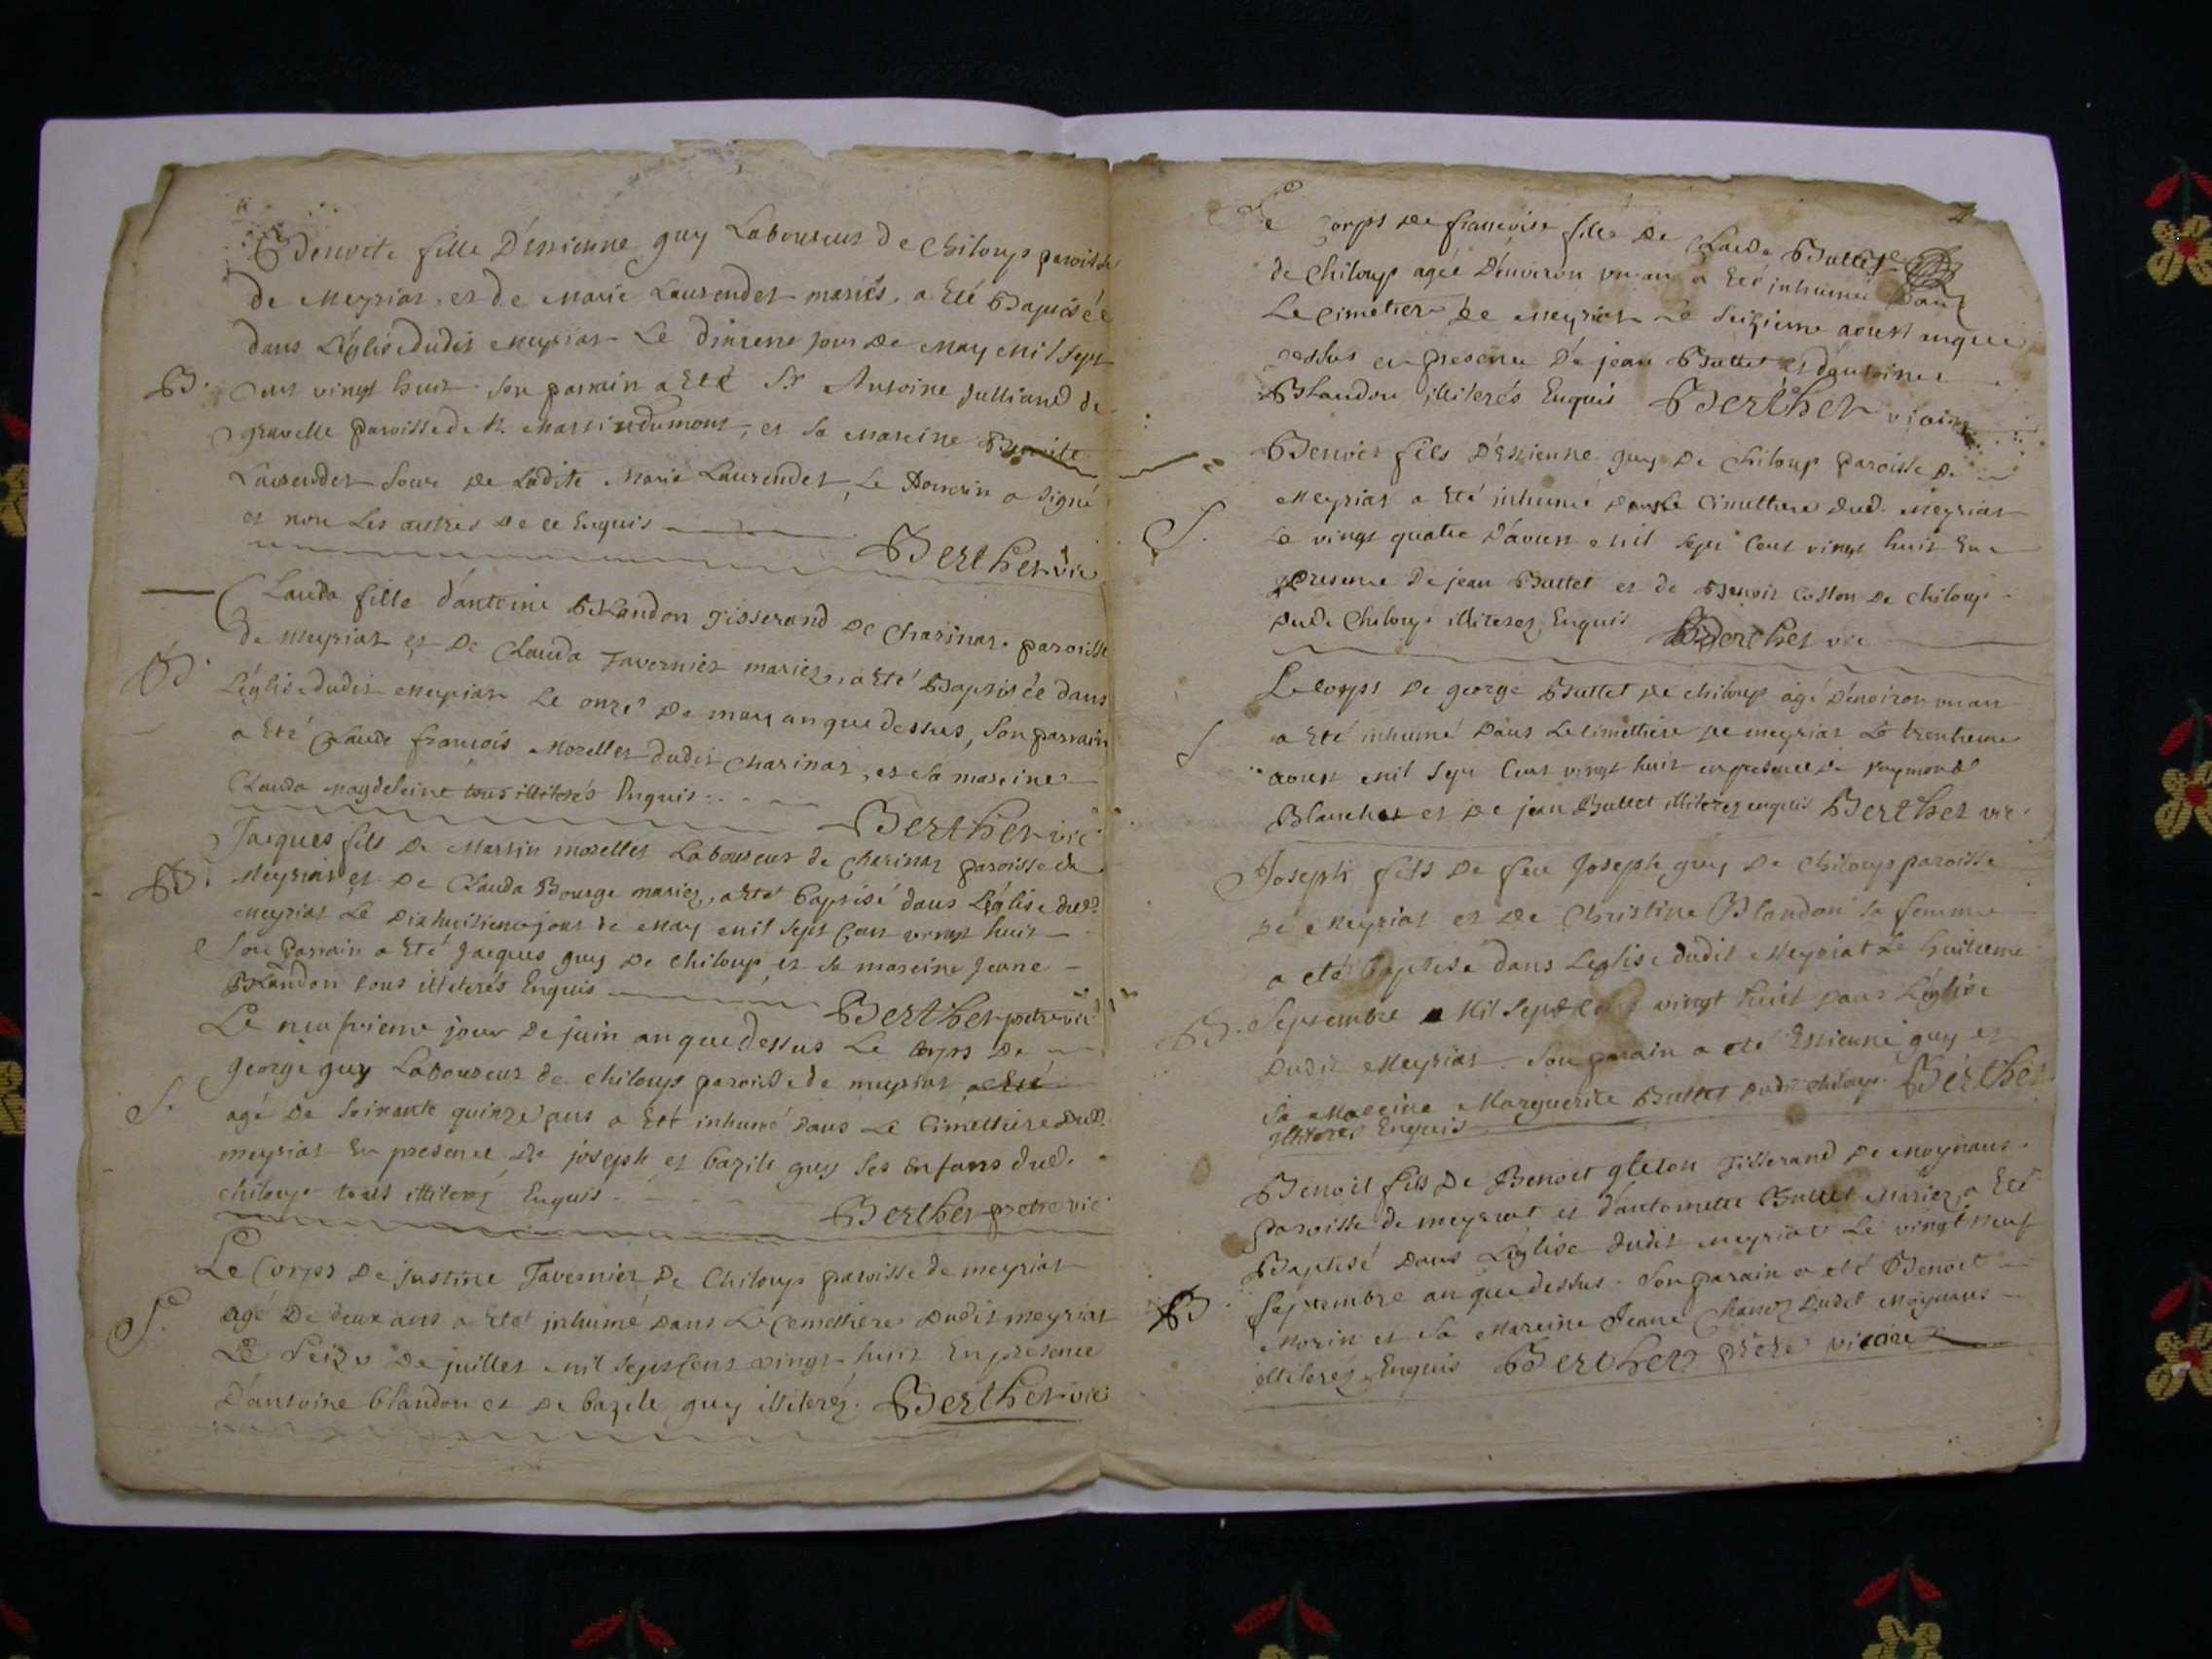 Benoite fille D'éstienne guy Laboureur de Chiloup paroisse
de Meyriat, et de Marie Laurendet mariés, a Eté Baptisée
dans L'église dudit Meyriat Le dixieme jour de May Mil Sept
B. Cent vingt huit Son parrain a Eté Sr Antoine Julliand de
gravelle paroisse de St. Martin du mont, et Sa Mareine Benoite
Laurendet Sœur de Ladite Marie Laurendet, Le Parrain a Signé
et non Les autres De ce Enquis
Berthet vic
Clauda fille d'antoine Blandon Tisserand De Charinas paroisse
de Meyriat et De Clauda Tavernier mariez, a Eté Baptisée dans
B. L'église dudit Meyriat Le onze De may an que dessus, Son parrain
a Eté Claude françois Morellet dudit Charinas, et Sa mareine
Clauda Magdeleine tous illiterés Enquis
Berthet vic
Jacques fils De Martin morellet Laboureur de Charinas paroisse de
B. Meyriat et De Clauda Bourge mariez, a eté baptisé dans L'église dud.
Meyriat Le Dixhuitieme jour de May mil Sept Cent vingt huit
Son Parrain a Eté Jacques guy De Chiloup, et Sa mareine Jeane
Blandon tous illeterés Enquis
Berthet prètre vic
Le neufvieme jour De juin an que dessus Le Corps De
George guy Laboureur de chiloup paroisse de meyriat a Eté
S. agé De Soixante quinze ans a Eté inhumé Dans Le Cimettiere Dud.
meyriat En presence De joseph et bazile guy Ses Enfans dud.
chiloup tous illiterez Enquis
Berthet pretre vic
Le Corps De justine Tavernier De Chiloup paroisse de meyriat
S. agé De deux ans a Eté inhumé Dans Le Cemettiere Dudit meyriat
Le Seize De juillet mil Sept Cent vingt huit En presence
D'antoine blandon et De bazile guy illiterez. Berthet vic
Le Corps De françoise fille De Claude Buttet
de Chiloup ageé D'environ un an a Eté inhumé Dans
Le Cimetiere de Meyriat Le Seizieme aoust an que
dessus en presence De jean Buttet et d'antoine
Blandon illiterés Enquis Berthet vicaire
Benoit fils D'éstienne guy De Chiloup paroisse De
Meyriat a Eté inhumé Dans Le Cimettiere dud. Meyriat
S. Le vingt quatre D'aoust mil Sept Cent vingt huit En
presence De jean Buttet et de Benoit Coston De Chiloup
Dudt Chiloup illiterez Enquis Berthet vic
Le Corps De george Buttet De Chiloup agé D'environ un an
S a Eté inhumé Dans Le Cimettiere De meyriat Le trentieme
aoust mil Sept Cent vingt huit en presence De Raymond
Blanchet et De jean Buttet illiterez enquis Berthet vic
Joseph fils De feu Joseph guy De Chiloup paroisse
De Meyriat et De Christine Blandon Sa femme
a eté baptisé dans L'eglise dudit Meyriat Le huitieme
B. Septembre Mil Sept Cent vingt huit Dans L'église
Dudit Meyriat. Son parain a eté Estienne guy et
Sa Mareine Marguerite Buttet Dudit Chiloup Berthet
Illiterés Enquis
Benoit fils De Benoit gleton Tisserand De Moynans
paroisse de meyriat et d'antoinette Buttet Mariez, a Eté
Baptisé Dans L'église Dudit Meyriat Le vingt neuf
B Septembre an que dessus. Son parain a eté Benoit
Morin et Sa Mareine Jeane Chanel Dudit Moynans
illiterés Enquis Berthet prètre vicaire